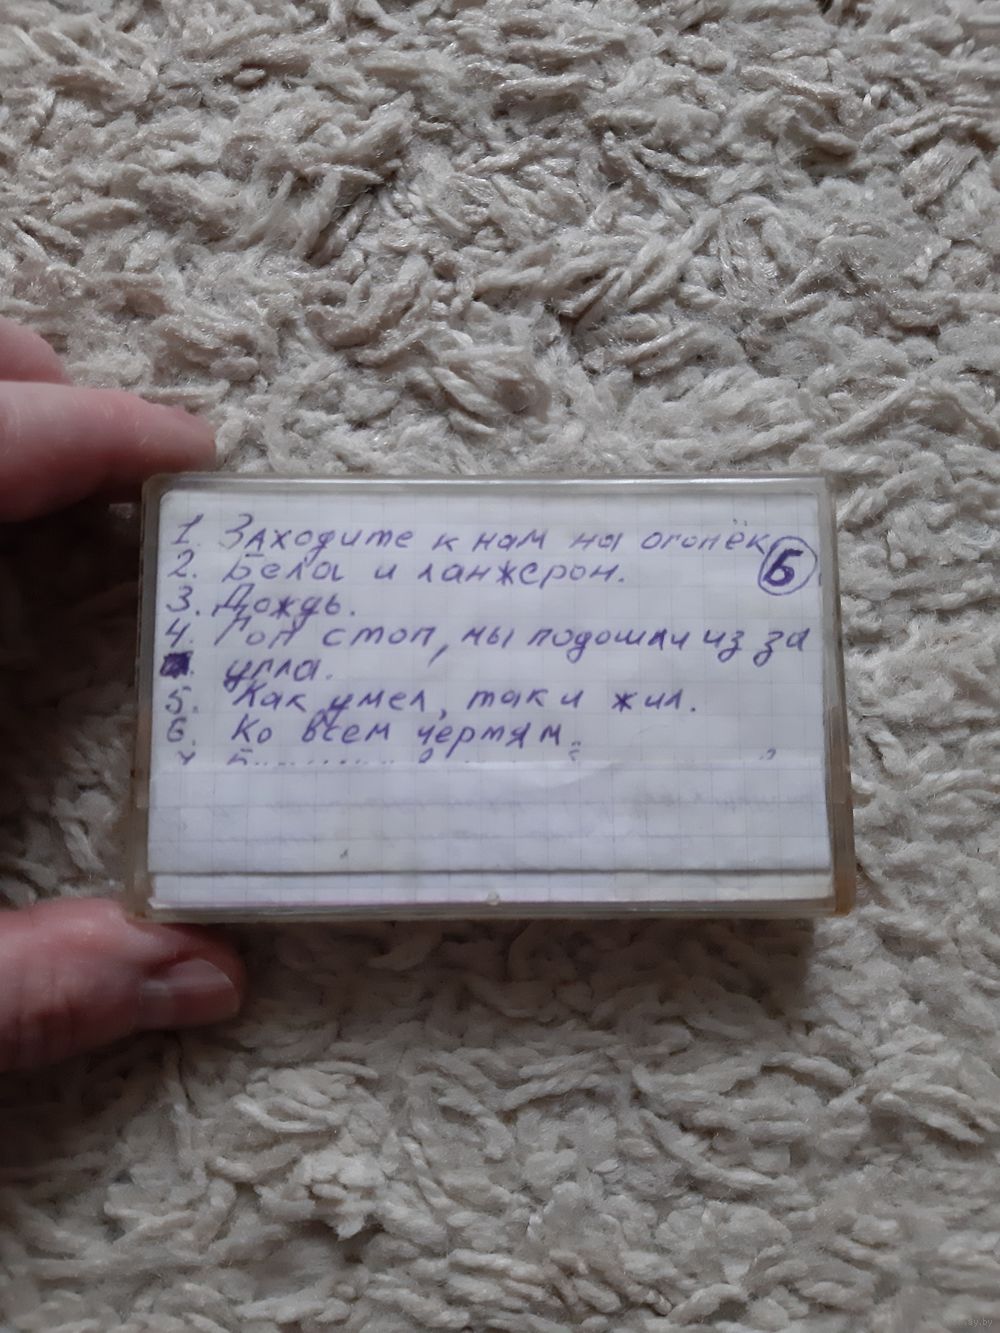 1. Заходите к нам на огонёк
2. Бела и ланжерон.
Б
3. Дождь.
4. Гоп стоп, мы подошли из за
угла.
5. Как умел, так и жил.
6. Ко всем чертям.
ay.by